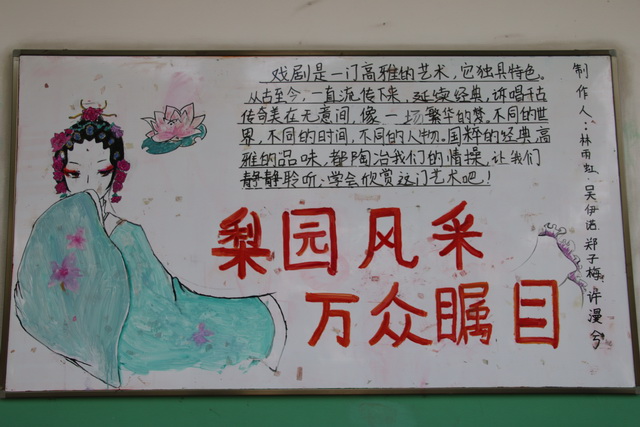 戏剧是一门高雅的艺术，它独具特色。
从古至今，一直流传下来，延续经典，诉唱千古
传奇美在无意间，像一场繁华的梦，不同的世
界，不同的时间，不同的人物。国粹的经典，高
雅的品味，都陶冶我们的情操，让我们
静静聆听，学会欣赏这门艺术吧！
梨园风采
万众瞩目
制作人：林雨虹 吴伊诺 郑子梅 许漫兮